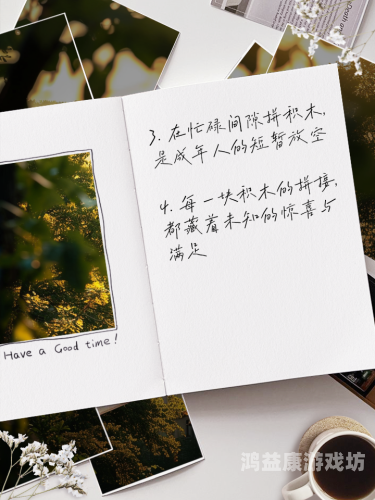 Have a Good time!
3. 在忙碌间隙拼积木,
是成年人的短暂放空
4. 每一块积木的拼接,
都藏着未知的惊喜与
满足
鸿益康游戏坊